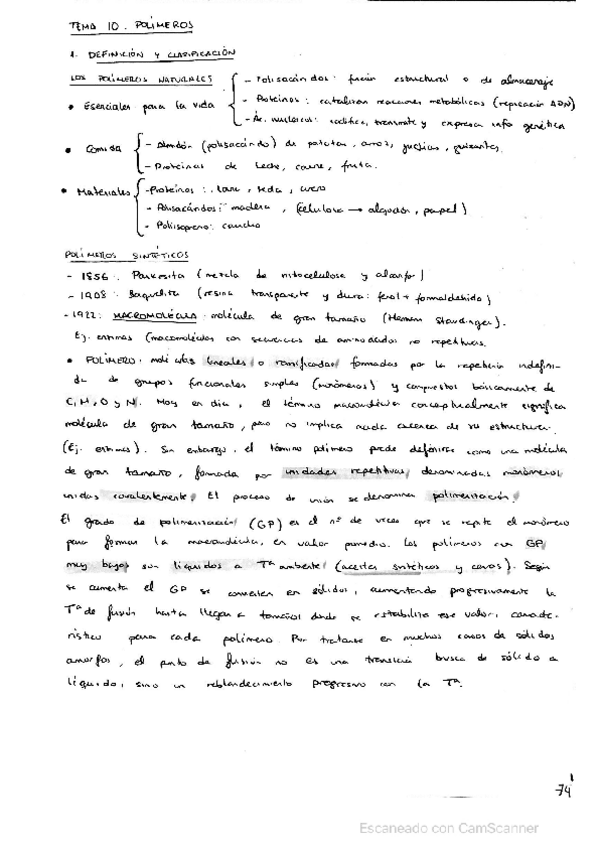 TEMA 10. POLÍMEROS
1. DEFINICIÓN Y CLASIFICACIÓN
LOS POLÍMEROS NATURALES
- Polisacáridos: función estructural o de almacenaje
• Esenciales para la vida
- Proteínas: catalizan reacciones metabólicas (replicación ADN)
- Ác. nucleicos: codifica, transmite y expresa info genética
• Comida
- Almidón (polisacárido) de patatas, arroz, judías, guisantes.
- Proteínas de leche, carne, fruta.
• Materiales
- Proteínas: lana, seda, cuero
- Polisacáridos: madera, (celulosa → algodón, papel)
- Poliisopreno: caucho
POLÍMEROS SINTÉTICOS
- 1856: Parkesita (mezcla de nitocelulosa y alcanfor)
- 1908: Baquelita (resina transparente y dura: fenol + formaldehido)
- 1922: MACROMOLÉCULA: molécula de gran tamaño (Hermann Staudinger).
Ej. enzimas (macromoléculas con secuencias de aminoácidos no repetitivas.
• POLÍMERO: moléculas lineales o ramificadas formadas por la repetición indefini-
da de grupos funcionales simples (monómeros) y compuestos básicamente de
C, H, O y N. Hoy en día, el término macromolécula conceptualmente significa
molécula de gran tamaño, pero no implica nada acerca de su estructura.
(Ej. enzimas). Sin embargo, el término polímero puede definirse como una molécula
de gran tamaño, formada por unidades repetitivas, denominadas monómeros
unidas covalentemente. El proceso de unión se denomina polimerización.
El grado de polimerización (GP) es el nº de veces que se repite el monómero
para formar la macromolécula, en valor promedio. Los polímeros con GP
muy bajos son líquidos a Tª ambiente (aceites sintéticos y ceras). Según
se aumenta el GP se convierten en sólidos, aumentando progresivamente la
Tª de fusión hasta llegar a tamaños donde se estabiliza ese valor, caracte-
rístico para cada polímero. Por tratarse en muchos casos de sólidos
amorfos, el punto de fusión no es una transición brusca de sólido a
líquido, sino un reblandecimiento progresivo con la Tª.
74
Escaneado con CamScanner